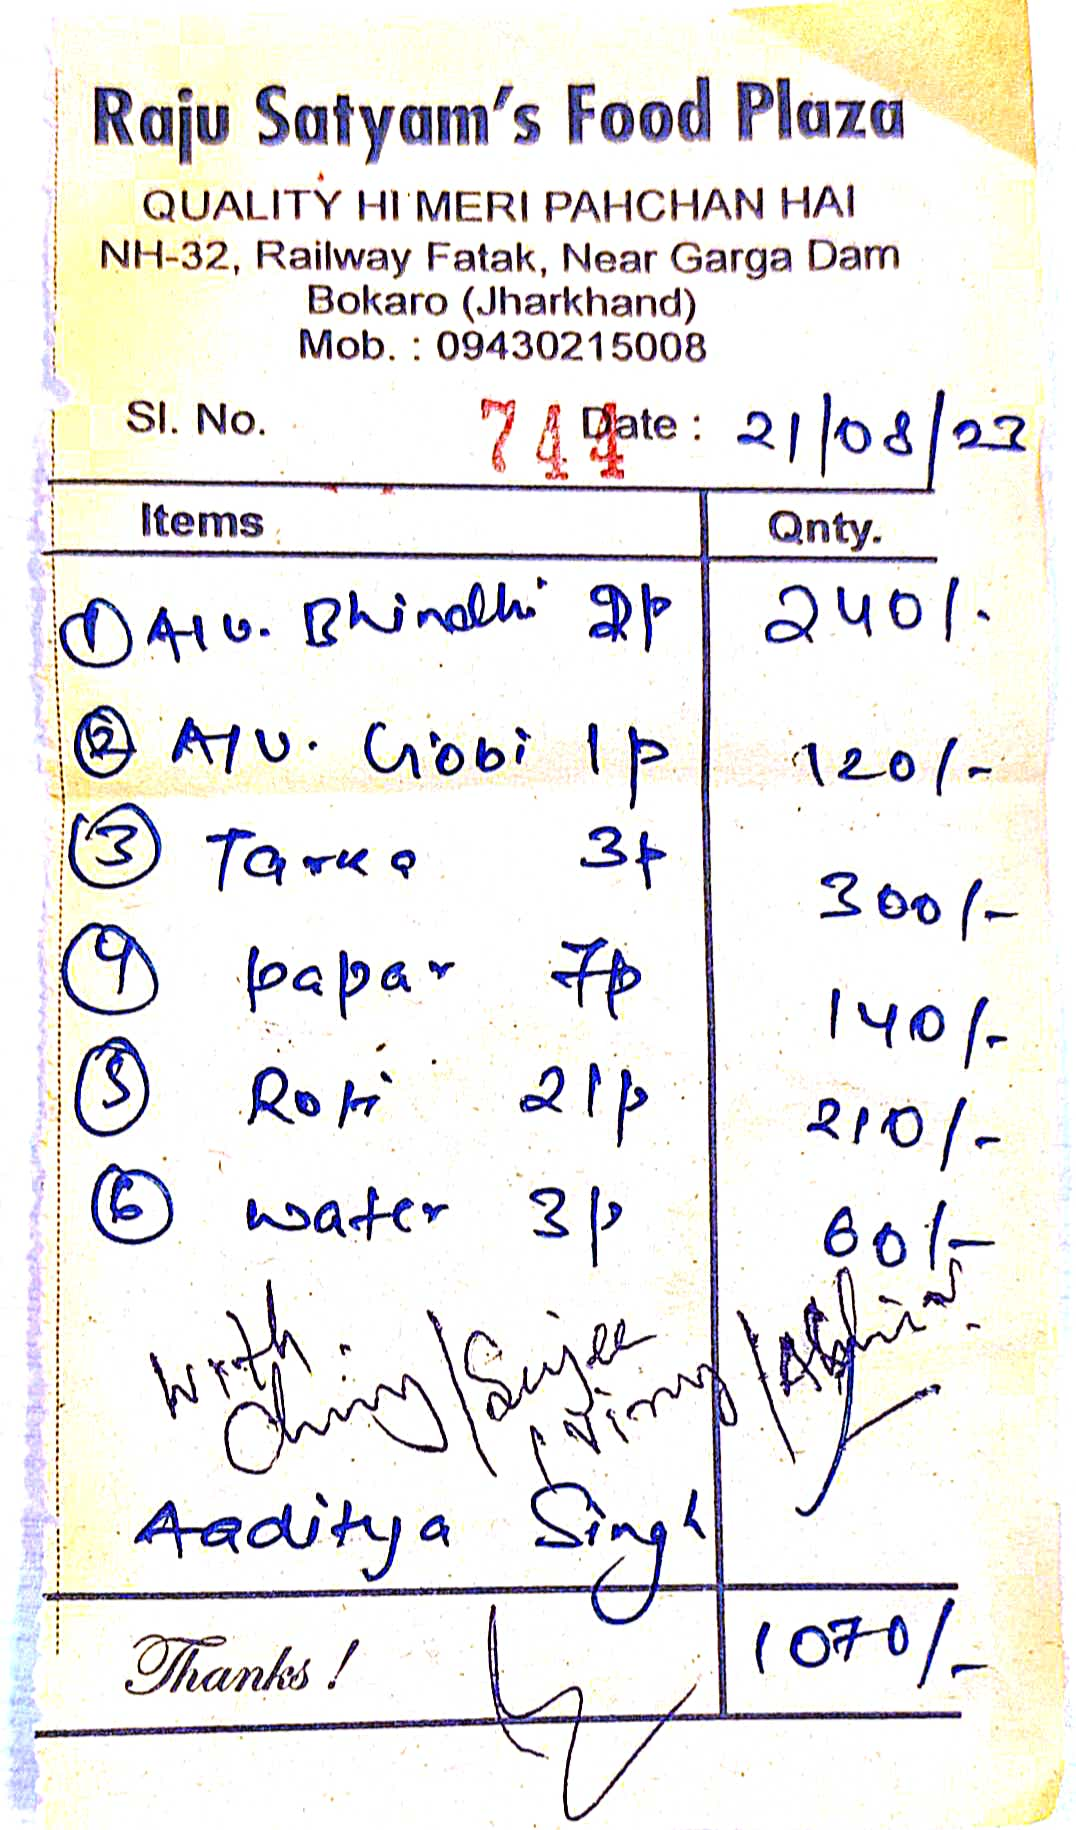 Raju Satyam's Food Plaza
QUALITY HI MERI PAHCHAN HAI
NH-32, Railway Fatak, Near Garga Dam
Bokaro (Jharkhand)
Mob. : 09430215008
Sl. No. 744 Date : 21/08/23
Items Qnty.
① Alu. Bhindhi 2p 240/-
② Alu. Gobi 1p 120/-
③ Tarka 3p 300/-
④ papar 7p 140/-
⑤ Roti 21p 210/-
⑥ water 3p 60/-
with
Aaditya Singh
Thanks ! 1070/-